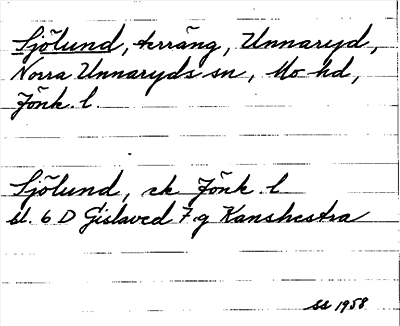 Sjölund, terräng, Unnaryd,
Norra Unnaryds sn, Mo hd,
Jönk. l.
Sjölund, ek Jönk. l
bl. 6 D Gislaved 7 g Kanshestra
SS 1958